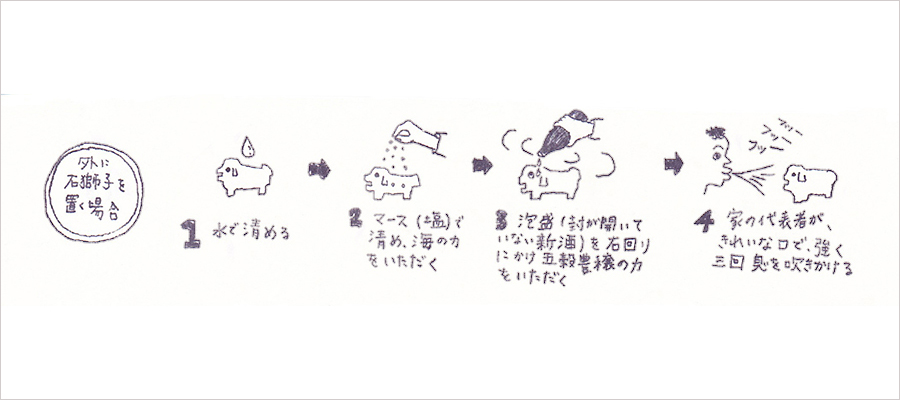 外に
石獅子を
置く場合
1 水で清める
2 マース(塩)で
清め、海の力
をいただく
3 泡盛(封が開いて
いない新酒)を右回り
にかけ五穀豊穣の力
をいただく
フッー
フッー
フッー
4 家の代表者が、
きれいな口で、強く
三回息を吹きかける